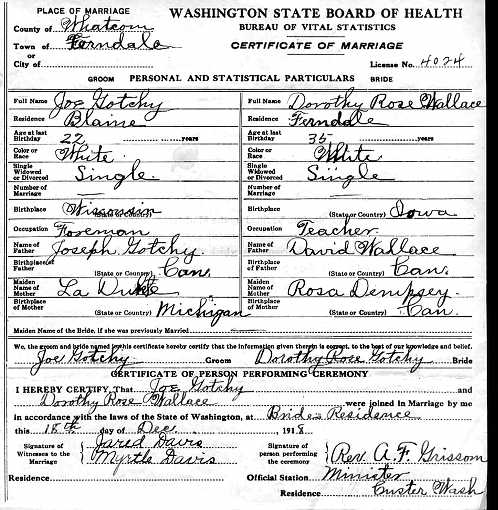 PLACE OF MARRIAGE
WASHINGTON STATE BOARD OF HEALTH
County of Whatcom
BUREAU OF VITAL STATISTICS
Town of Ferndale
CERTIFICATE OF MARRIAGE
or
City of
License No. 4024
GROOM PERSONAL AND STATISTICAL PARTICULARS BRIDE
Full Name Joe Gotchy Full Name Dorothy Rose Wallace
Residence Blaine Residence Ferndale
Age at last Birthday years Age at last Birthday 35 years
Color or Race White Color or Race White
Single Widowed or Divorced Single Single Widowed or Divorced Single
Number of Marriage Number of Marriage
Birthplace Wisconsin (State or Country) Birthplace (State or Country) Iowa
Occupation Foreman Occupation Teacher
Name of Father Joseph Gotchy Name of Father David Wallace
Birthplace of Father (State or Country) Can. Birthplace of Father (State or Country) Can.
Maiden Name of Mother La Maiden Name of Mother Rosa Dempsey
Birthplace of Mother (State or Country) Michigan Birthplace of Mother (State or Country) Can.
Maiden Name of the Bride, if she was previously Married
We, the groom and bride named in this certificate hereby certify that the information given therein is correct, to the best of our knowledge and belief.
Joe Gotchy Groom Dorothy Rose Gotchy Bride
CERTIFICATE OF PERSON PERFORMING CEREMONY
I HEREBY CERTIFY, That Joe Gotchy and
Dorothy Rose Wallace were joined in Marriage by me
in accordance with the laws of the State of Washington, at Bride's Residence
this 18th day of Dec. 1918
Signature of Witnesses to the Marriage Jared Davis Signature of person performing the ceremony Rev. A. F. Grissom
Myrtle Davis
Official Station Minister
Residence Custer Wash